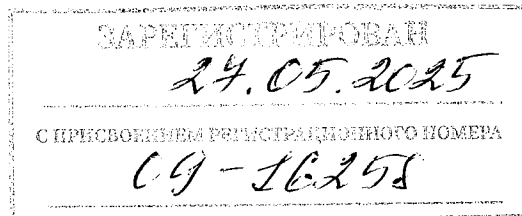 ЗАРЕГИСТРИРОВАН
27.05.2025
С ПРИСВОЕНИЕМ РЕГИСТРАЦИОННОГО НОМЕРА
09-16258